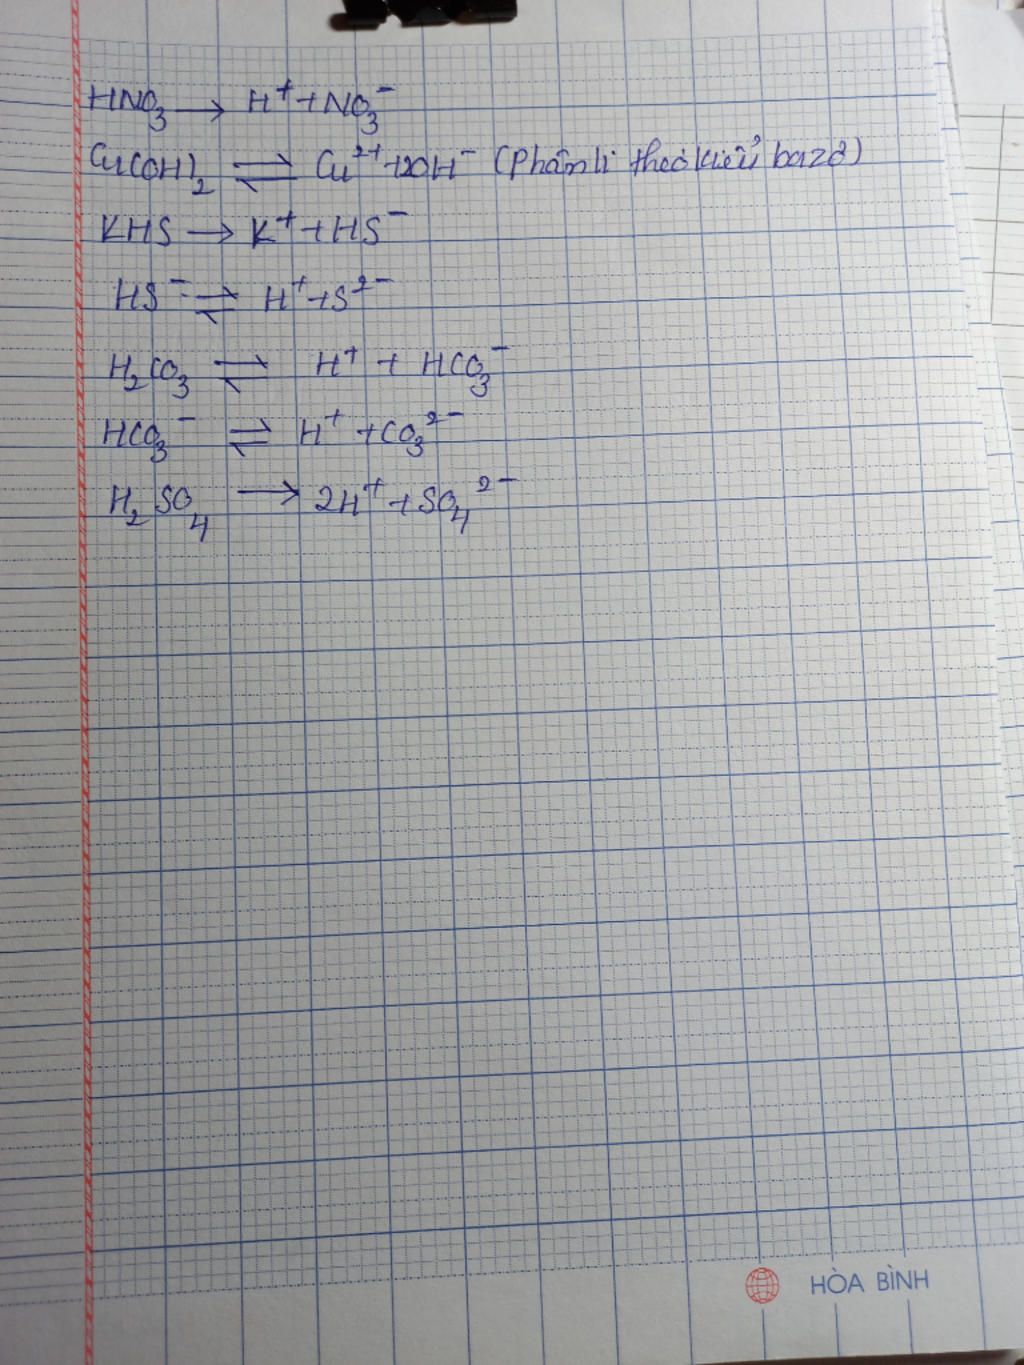 HNO₃ → H⁺ + NO₃⁻
Cu(OH)₂ ⇌ Cu²⁺ + 2OH⁻ (Phân li theo kiểu bazơ)
KHS → K⁺ + HS⁻
HS⁻ ⇌ H⁺ + S²⁻
H₂CO₃ ⇌ H⁺ + HCO₃⁻
HCO₃⁻ ⇌ H⁺ + CO₃²⁻
H₂SO₄ → 2H⁺ + SO₄²⁻
HÒA BÌNH